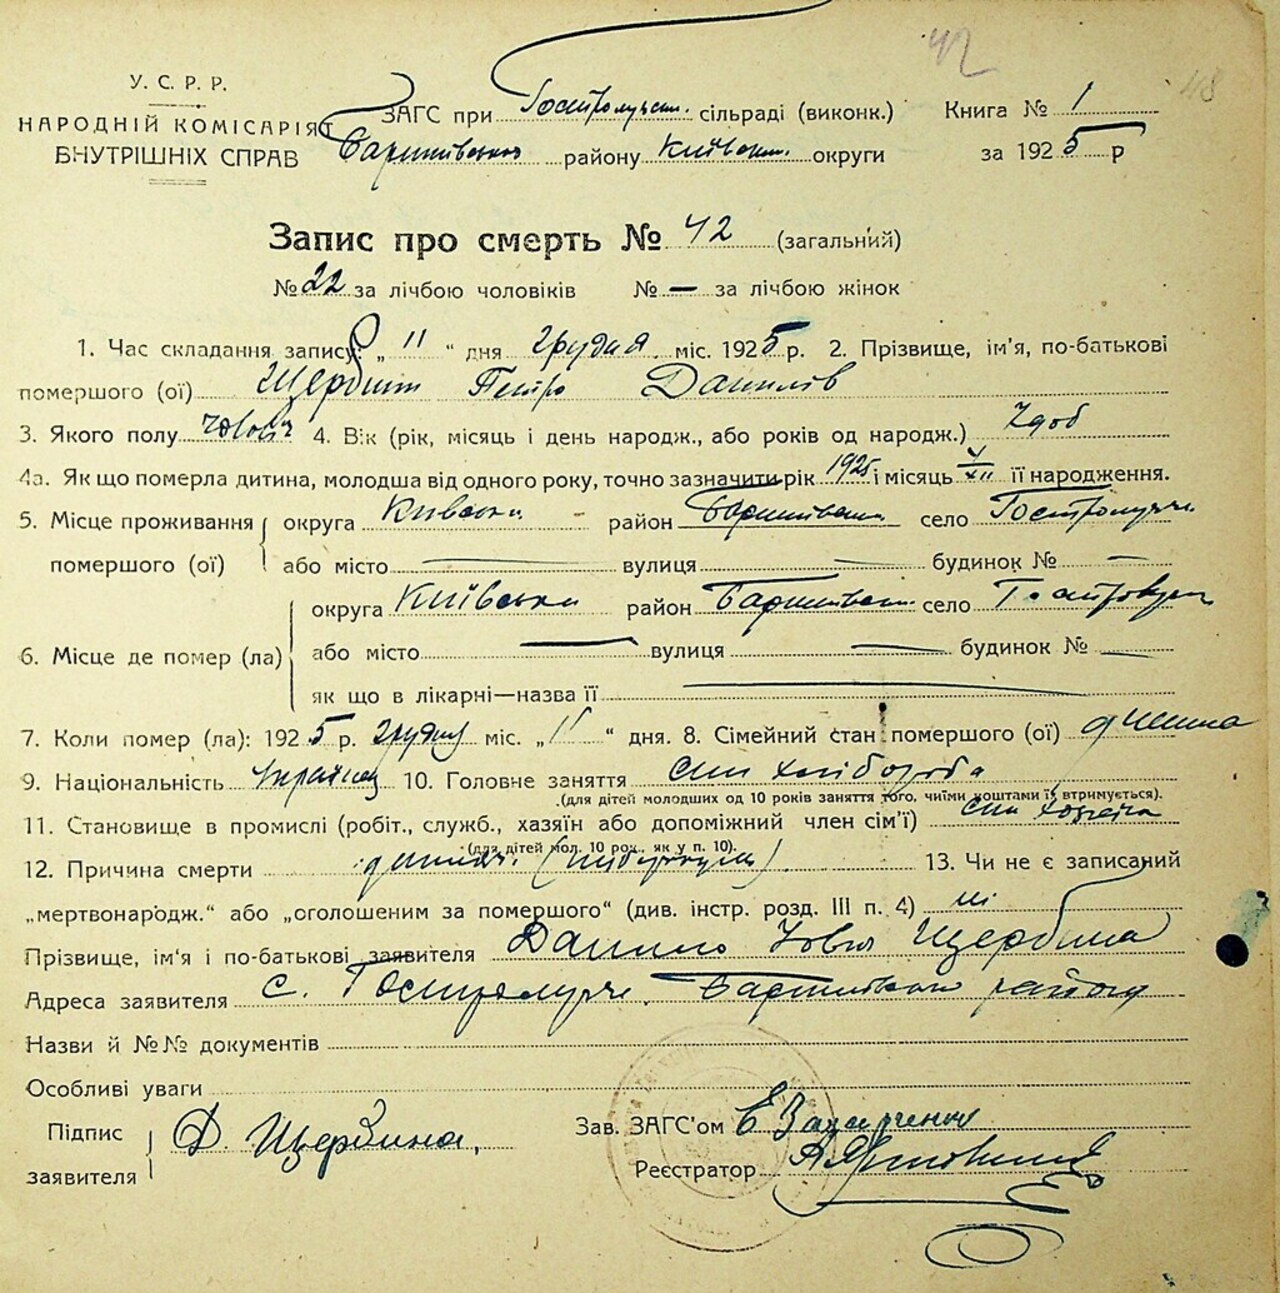 42
48
У. С. Р. Р.
НАРОДНІЙ КОМІСАРІЯТ
ВНУТРІШНІХ СПРАВ
ЗАГС при Гостролуцьк. сільраді (виконк.)
Баришівськ району Київськ. округи
Книга № 1
за 1925 р
Запис про смерть № 42 (загальний)
№ 22 за лічбою чоловіків № — за лічбою жінок
1. Час складання запису: „ 11 “ дня грудня міс. 1925 р. 2. Прізвище, ім'я, по-батькові
помершого (ої) Щербина Петро Данилів
3. Якого полу чоловіч 4. Вік (рік, місяць і день народж., або років од народж.) 7 доб
4а. Як що померла дитина, молодша від одного року, точно зазначити рік 1925 і місяць XII її народження.
5. Місце проживання помершого (ої) округа Київська район Баришівськ село Гостролуччє
або місто — вулиця — будинок № —
6. Місце де помер (ла) округа Київська район Баришівськ село Гостролуч
або місто — вулиця — будинок № —
як що в лікарні—назва її —
7. Коли помер (ла): 1925 р. грудня міс. „ 11 “ дня. 8. Сімейний стан помершого (ої) дитина
9. Національність Українец 10. Головне заняття син хлібороба
(для дітей молодших од 10 років заняття того, чиїми коштами їх втримується).
11. Становище в промислі (робіт., служб., хазяїн або допоміжний член сім'ї) син хазяїна
(для дітей мол. 10 рок., як у п. 10).
12. Причина смерти 13. Чи не є записаний
„мертвонародж.“ або „оголошеним за помершого“ (див. інстр. розд. III п. 4) ні
Прізвище, ім'я і по-батькові заявителя Данило Щербина
Адреса заявителя с. Гостролуччє Баришівськ району
Назви й №№ документів
Особливі уваги
Підпис заявителя Д. Щербина,
Зав. ЗАГС'ом Е Захарченко
Реєстратор